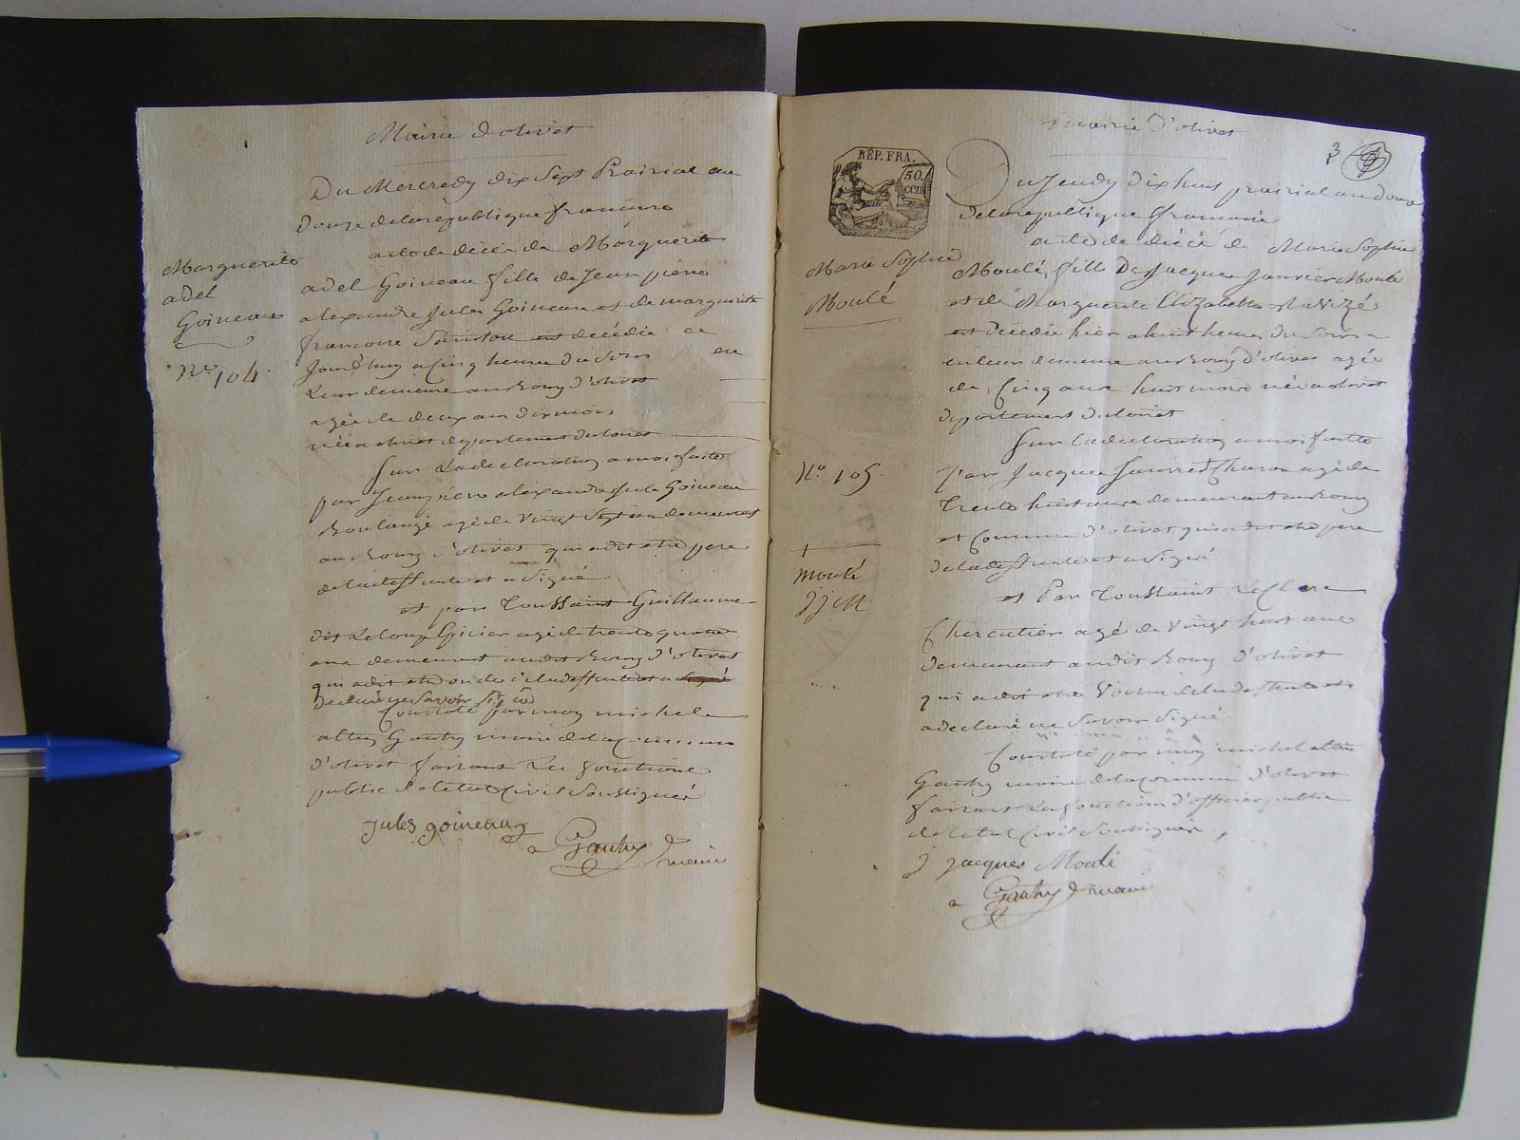 Mairie d'olivet
Du Mercredy dix Sept Prairial an
Douze de la republique francaise
acte de décéé de Marguerite
adel Goineau fille de Jean pierre
alexandre Jules Goineau et de marguerite
francoise est décédée ce
Jourdhuy a Cinq heures du Soir en
Leur demeure au Bourg d'olivet
agée de deux ans dix mois
née a olivet departement du loiret
Sur La declaration a moi faite
par Jean pierre alexandre Jules Goineau
Boulangé agé de Vingt Sept ans demeurant
au Bourg d'olivet qui a dit etre pere
de la deffunte et a Signé
et par Toussaint Guillaume
dit Leloup Epicier agé de trente quatre
ans demeurant audit Bourg d'olivet
qui a dit etre de la deffunte et a Signé
declaré ne Savoir Signé
Constaté par moy michel
altin Gauthy maire de la Commune
d'olivet faisant Les fonctions
public de letat Civil Soussigné
Jules goineau
a Gauthy maire
Marguerite
adel
Goineau
No 104.
mairie d'olivet
3
RÉP. FRA.
50.
CEN
Du Jeudy dix huit prairial an douze
de la republique francaise
acte de décéé de Marie Sophie
Moulé, fille De Jacques Janvier Moulé
et de Marguerite Elizabette
est decedée hier a huit heures du Soir
en leur demeure au Bourg d'olivet agée
de Cinq ans huit mois née a olivet
departement du loiret
Sur la declaration a moi faitte
Par Jacques agé de
trente huit ans demeurant au Bourg
et Commune d'olivet qui a dit etre pere
de la deffunte et a Signé
et Par Toussaint Leclere
Chercutier agé de Vingt huit ans
demeurant audit Bourg d'olivet
qui a dit etre Voisin de la deffunte et
a declaré ne Savoir Signé
Constaté par moy michel altin
Gauthy maire de la Commune d'olivet
faisant Les fonction d'officier public
de letat Civil Soussigné
J Jacques Moulé
a Gauthy maire
Marie Sophie
Moulé
No. 105.
Moulé